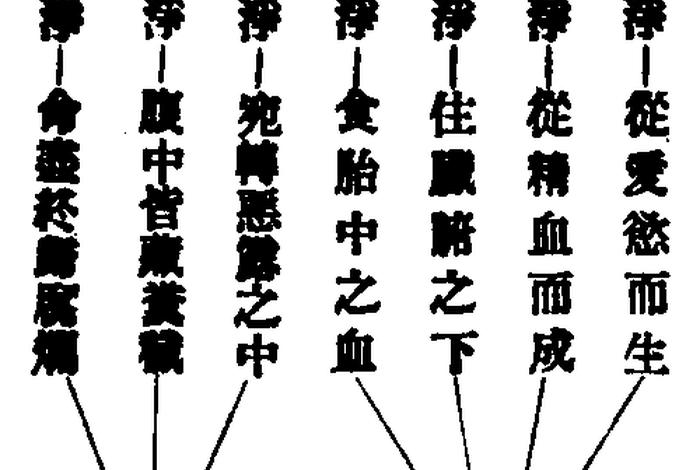 淨—從愛慾而生
淨—從精血而成
淨—住臟腑之下
淨—食胎中之血
淨—宛轉惡露之中
淨—腹中皆藏糞穢
淨—命盡於膖腐爛